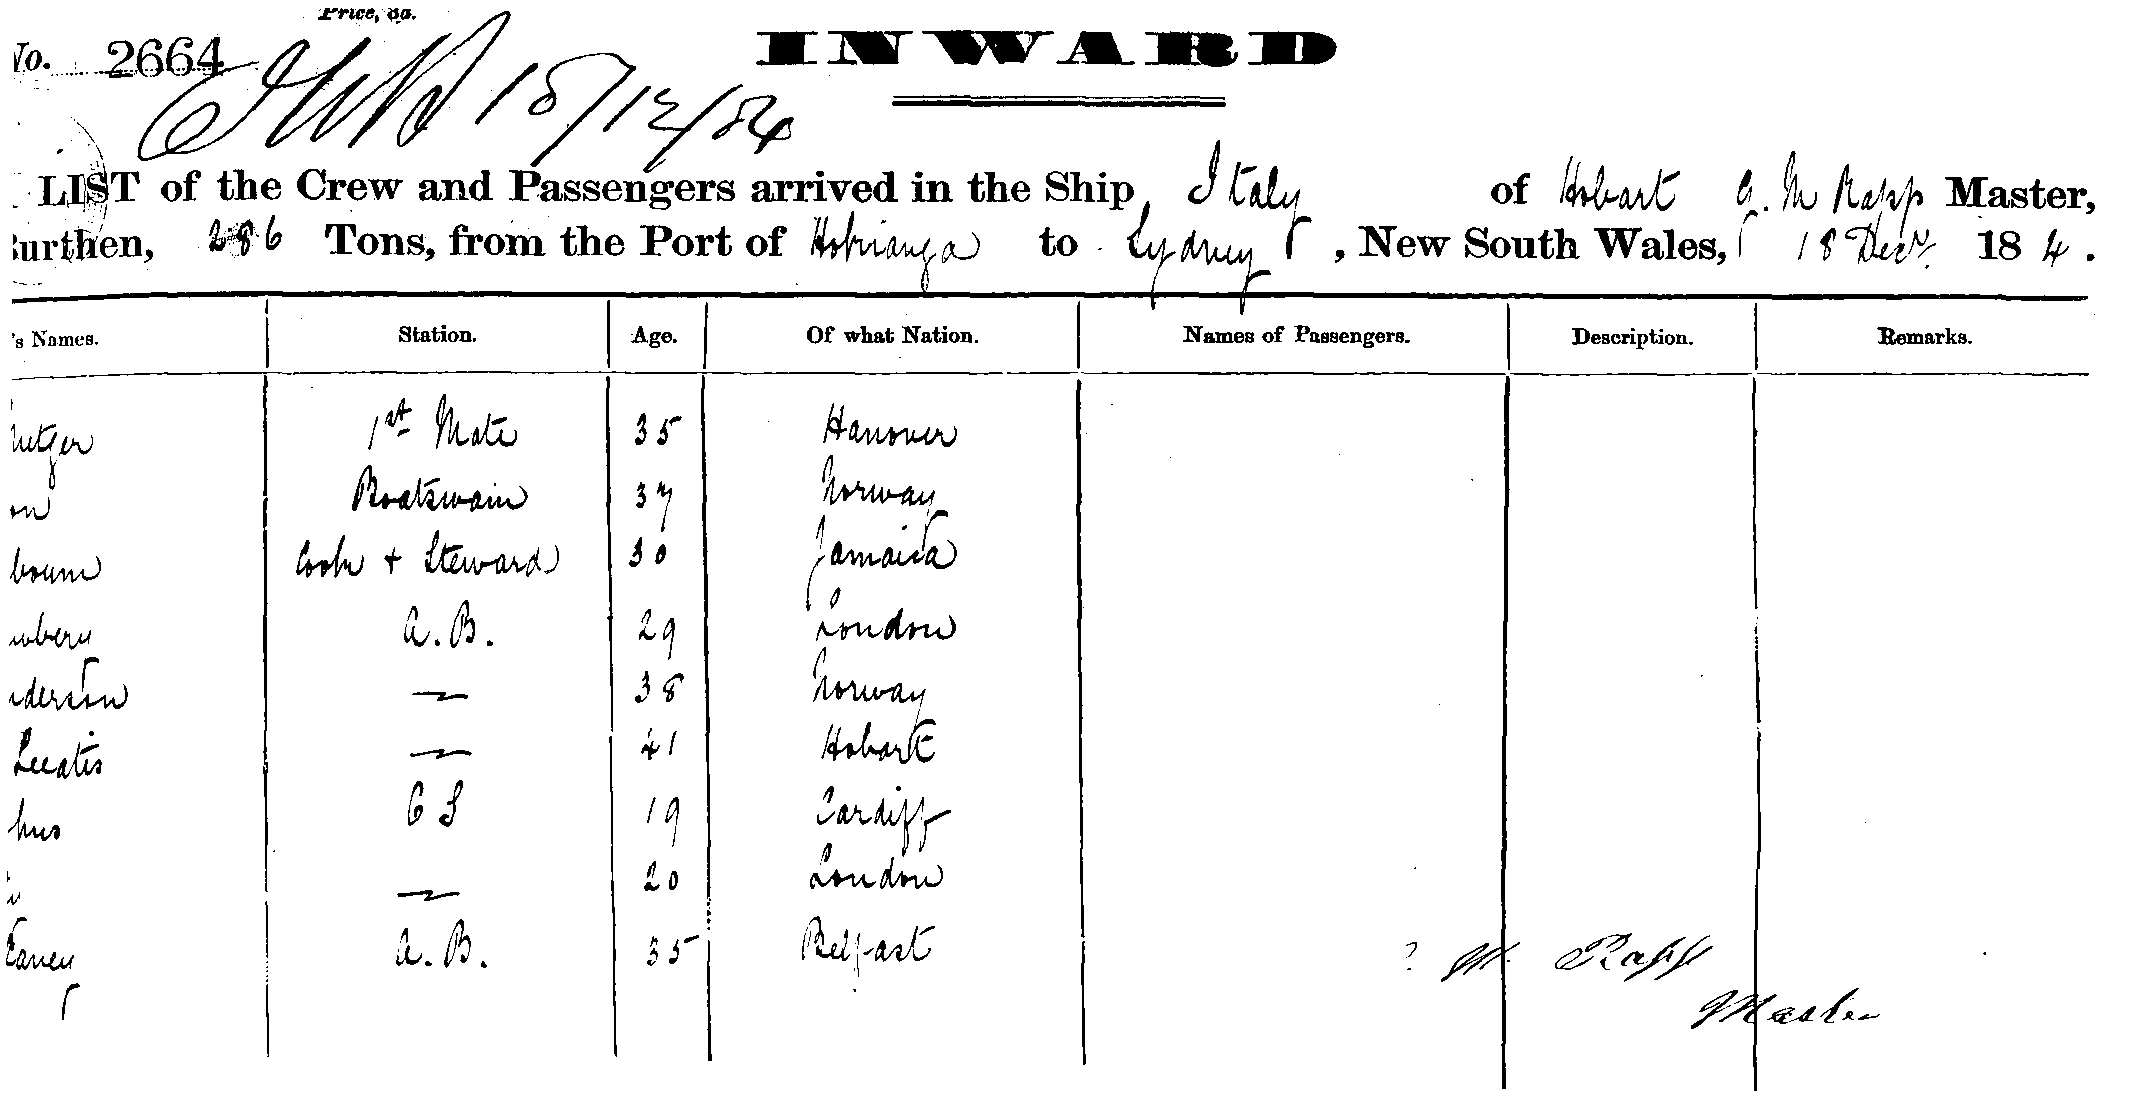 Price, 8d.
No. 2664
INWARD
18/12/84
LIST of the Crew and Passengers arrived in the Ship Italy of Hobart G. M Rapp Master,
Burthen, 286 Tons, from the Port of Hokianga to Sydney, New South Wales, 18 Decr. 18 4.
's Names. Station. Age. Of what Nation. Names of Passengers. Description. Remarks.
1st Mate 35 Hanover
on Boatswain 37 Norway
bourn Cook + Steward 30 Jamaica
wbery A. B. 29 London
derson — 38 Norway
— 41 Hobart
hus O S 19 Cardiff
— 20 London
A. B. 35 Belfast
M. Rapp
Master